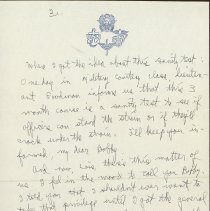 3.
Where I got the idea about this sanity test:
One day in military courtesy class, lieuten-
ant informs us that this 3
month course is a sanity test to see if
officers can stand the strain or if they'll
crack under the strain. I'll keep you in-
formed, my dear Bobby.
And now comes this matter of
us. I felt in the mood to call you Bobby.
I told you that I shouldn't want to
take that privilege until I got the general